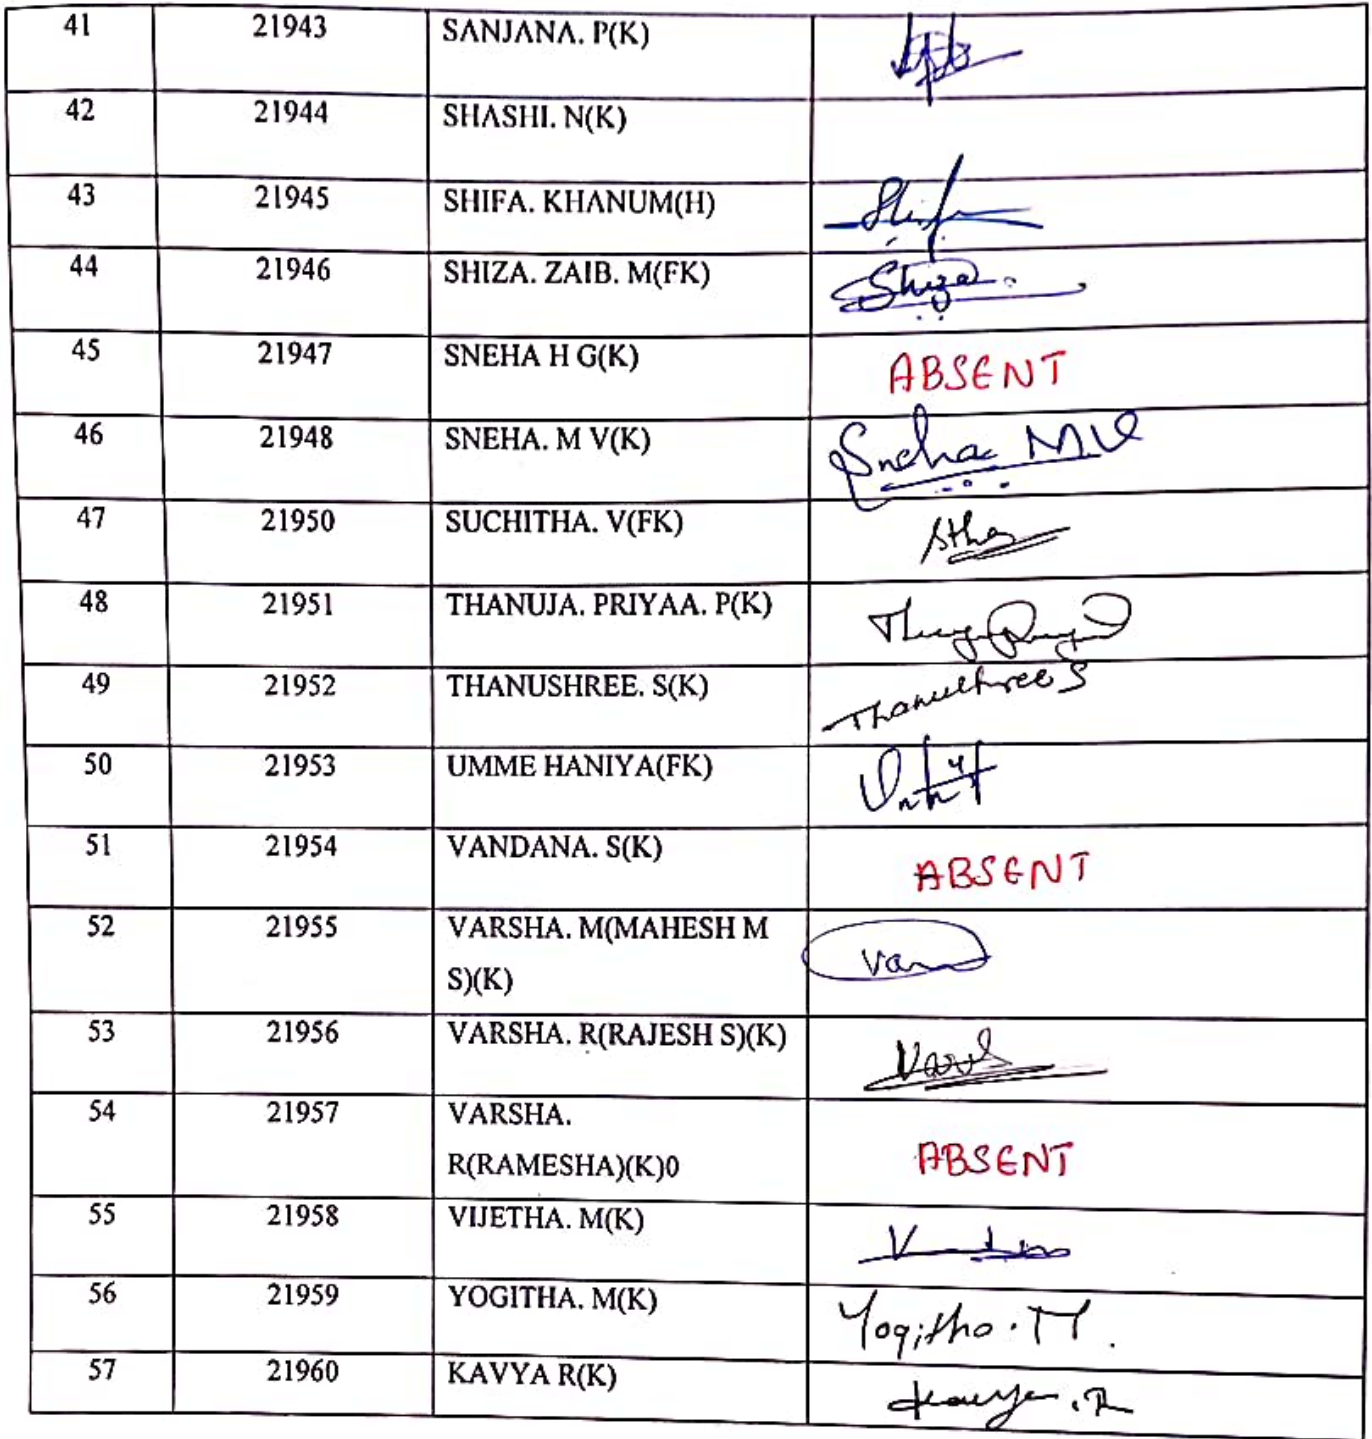 41 21943 SANJANA. P(K)
42 21944 SHASHI. N(K)
43 21945 SHIFA. KHANUM(H)
44 21946 SHIZA. ZAIB. M(FK) Shiza
45 21947 SNEHA H G(K) ABSENT
46 21948 SNEHA. M V(K) Sneha M V
47 21950 SUCHITHA. V(FK)
48 21951 THANUJA. PRIYAA. P(K)
49 21952 THANUSHREE. S(K) Thanushree S
50 21953 UMME HANIYA(FK)
51 21954 VANDANA. S(K) ABSENT
52 21955 VARSHA. M(MAHESH M
S)(K)
53 21956 VARSHA. R(RAJESH S)(K)
54 21957 VARSHA.
R(RAMESHA)(K)0 ABSENT
55 21958 VIJETHA. M(K)
56 21959 YOGITHA. M(K) Yogitha. M.
57 21960 KAVYA R(K) Kavya. R